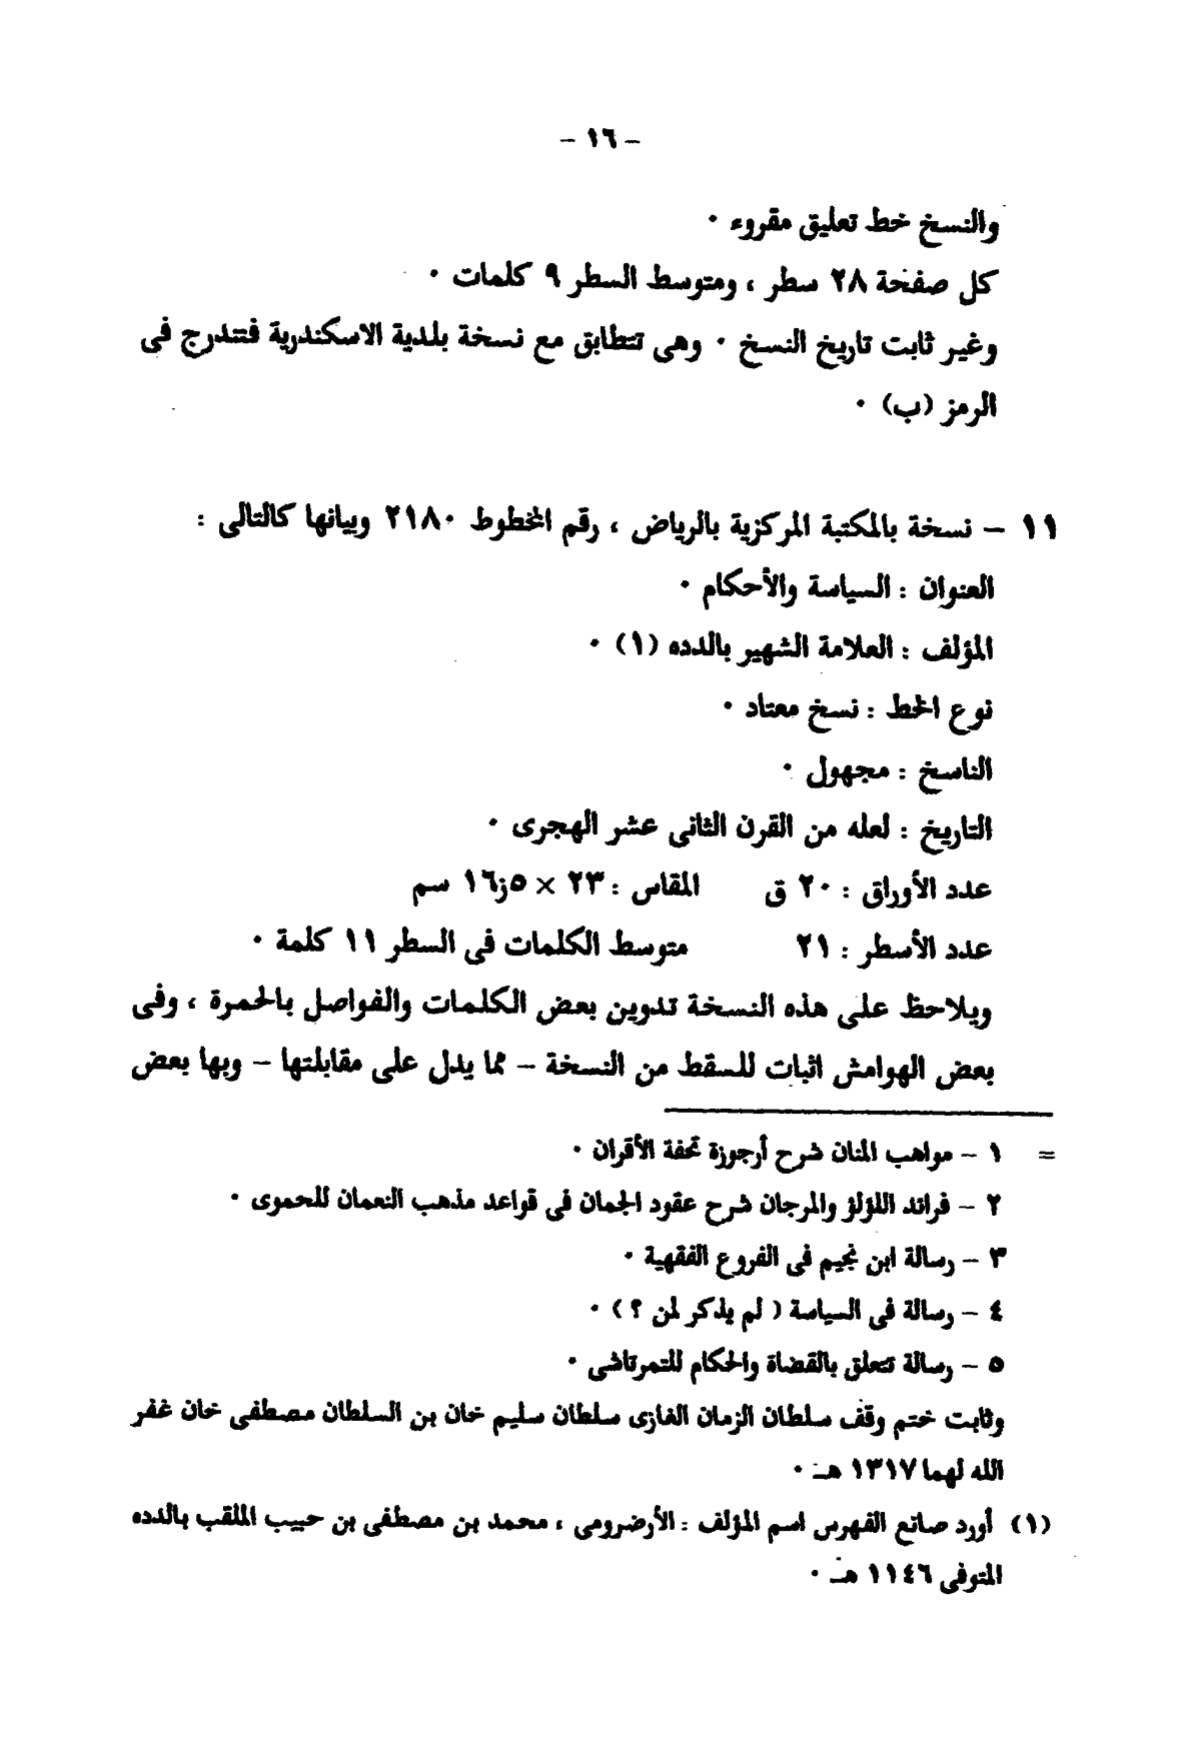 - ١٦ -
والنسخ خط تعليق مقروء ٠
كل صفحة ٢٨ سطر ، ومتوسط السطر ٩ كلمات ٠
وغير ثابت تاريخ النسخ ٠ وهى تتطابق مع نسخة بلدية الاسكندرية فتندرج فى
الرمز (ب) ٠
١١ - نسخة بالمكتبة المركزية بالرياض ، رقم المخطوط ٢١٨٠ وبيانها كالتالى :
العنوان : السياسة والأحكام ٠
المؤلف : العلامة الشهير بالدده (١) ٠
نوع الخط : نسخ معتاد ٠
الناسخ : مجهول ٠
التاريخ : لعله من القرن الثانى عشر الهجرى ٠
عدد الأوراق : ٢٠ ق المقاس : ٢٣ × ٥ر١٦ سم
عدد الأسطر : ٢١ متوسط الكلمات فى السطر ١١ كلمة ٠
ويلاحظ على هذه النسخة تدوين بعض الكلمات والفواصل بالحمرة ، وفى
بعض الهوامش اثبات للسقط من النسخة - مما يدل على مقابلتها - وبها بعض
= ١ - مواهب المنان شرح أرجوزة تحفة الأقران ٠
٢ - فرائد اللؤلؤ والمرجان شرح عقود الجمان فى قواعد مذهب النعمان للحموى ٠
٣ - رسالة ابن نجيم فى الفروع الفقهية ٠
٤ - رسالة فى السياسة ( لم يذكر لمن ؟ ) ٠
٥ - رسالة تتعلق بالقضاة والحكام للتمرتاشى ٠
وثابت ختم وقف سلطان الزمان الغازى سلطان سليم خان بن السلطان مصطفى خان غفر
الله لهما ١٣١٧ هـ ٠
(١) أورد صانع الفهرس اسم المؤلف : الأرضرومى ، محمد بن مصطفى بن حبيب الملقب بالدده
المتوفى ١١٤٦ هـ ٠